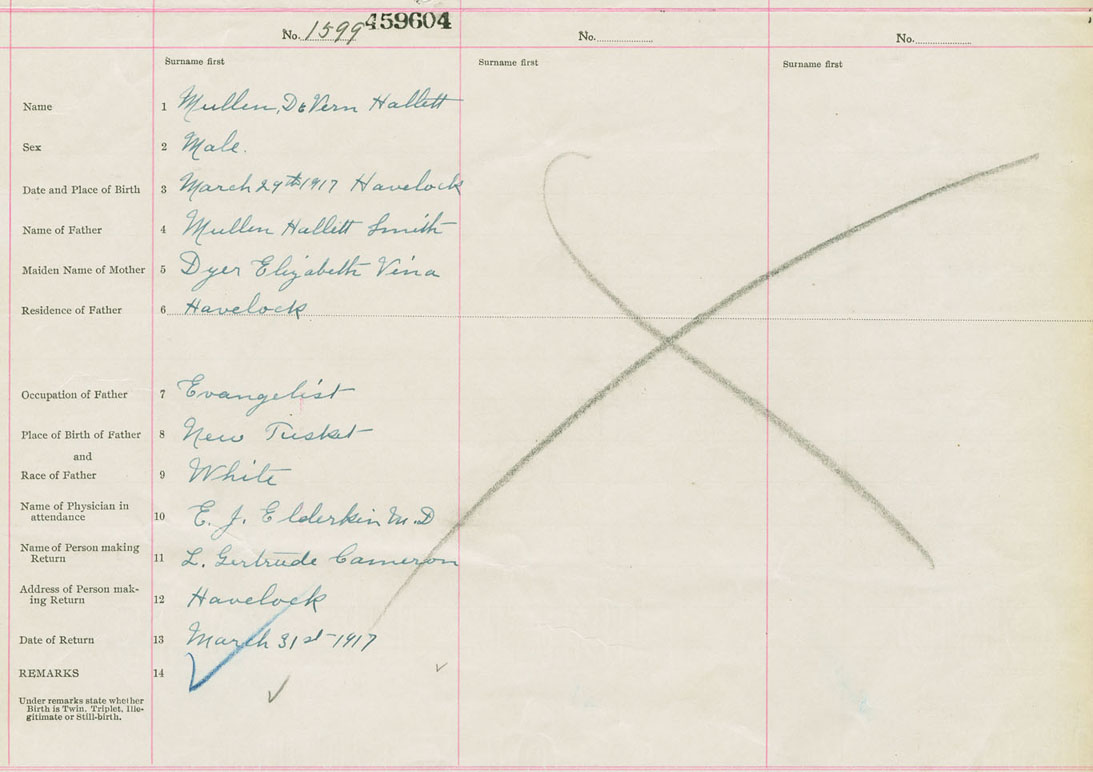 No. 1599 459604 No. No.
Surname first Surname first Surname first
Name 1 Mullen, DeVern Hallett
Sex 2 Male.
Date and Place of Birth 3 March 29th 1917 Havelock
Name of Father 4 Mullen Hallett Smith
Maiden Name of Mother 5 Dyer Elizabeth Vina
Residence of Father 6 Havelock
Occupation of Father 7 Evangelist
Place of Birth of Father 8 New Tusket
and
Race of Father 9 White
Name of Physician in
attendance 10 E. J. Elderkin M.D
Name of Person making
Return 11 L. Gertrude Cameron
Address of Person mak-
ing Return 12 Havelock
Date of Return 13 March 31st-1917
REMARKS 14
Under remarks state whether
Birth is Twin, Triplet, Ille-
gitimate or Still-birth.